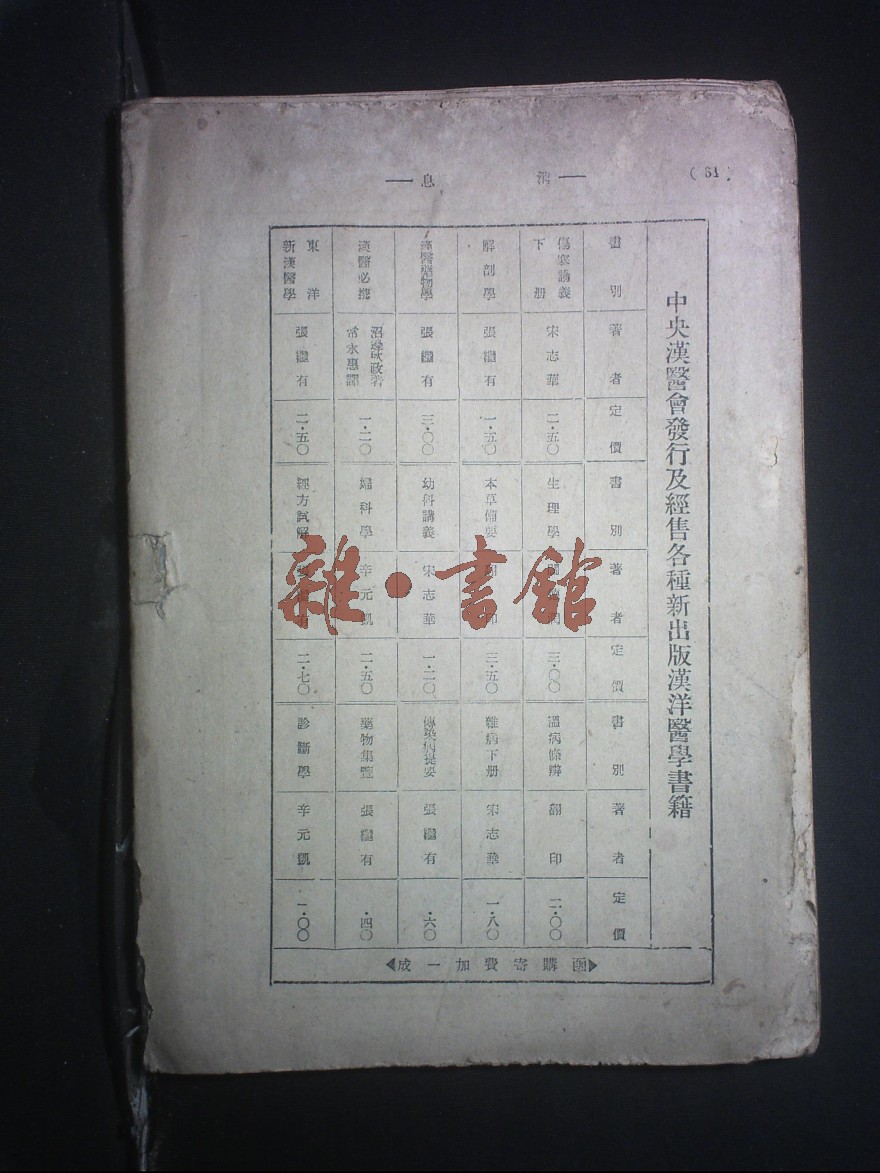 (61)
消息
中央漢醫會發行及經售各種新出版漢洋醫學書籍
書別 著者 定價 書別 著者 定價 書別 著者 定價
傷寒講義下册 宋志華 二·五〇 生理學 三·〇〇 溫病條辨 翻印 二·〇〇
解剖學 張繼有 一·五〇 本草備要 翻印 三·五〇 雜病下册 宋志華 一·八〇
漢醫藥物學 張繼有 三·〇〇 幼科講義 宋志華 一·二〇 傳染病提要 張繼有 ·六〇
漢醫必攜 常永惠譯 一·二〇 婦科學 辛元凱 二·五〇 藥物集覽 張繼有 ·四〇
東洋新漢醫學 張繼有 二·五〇 經方試解 二·七〇 診斷學 辛元凱 一·〇〇
函購寄費加一成
雜·書館